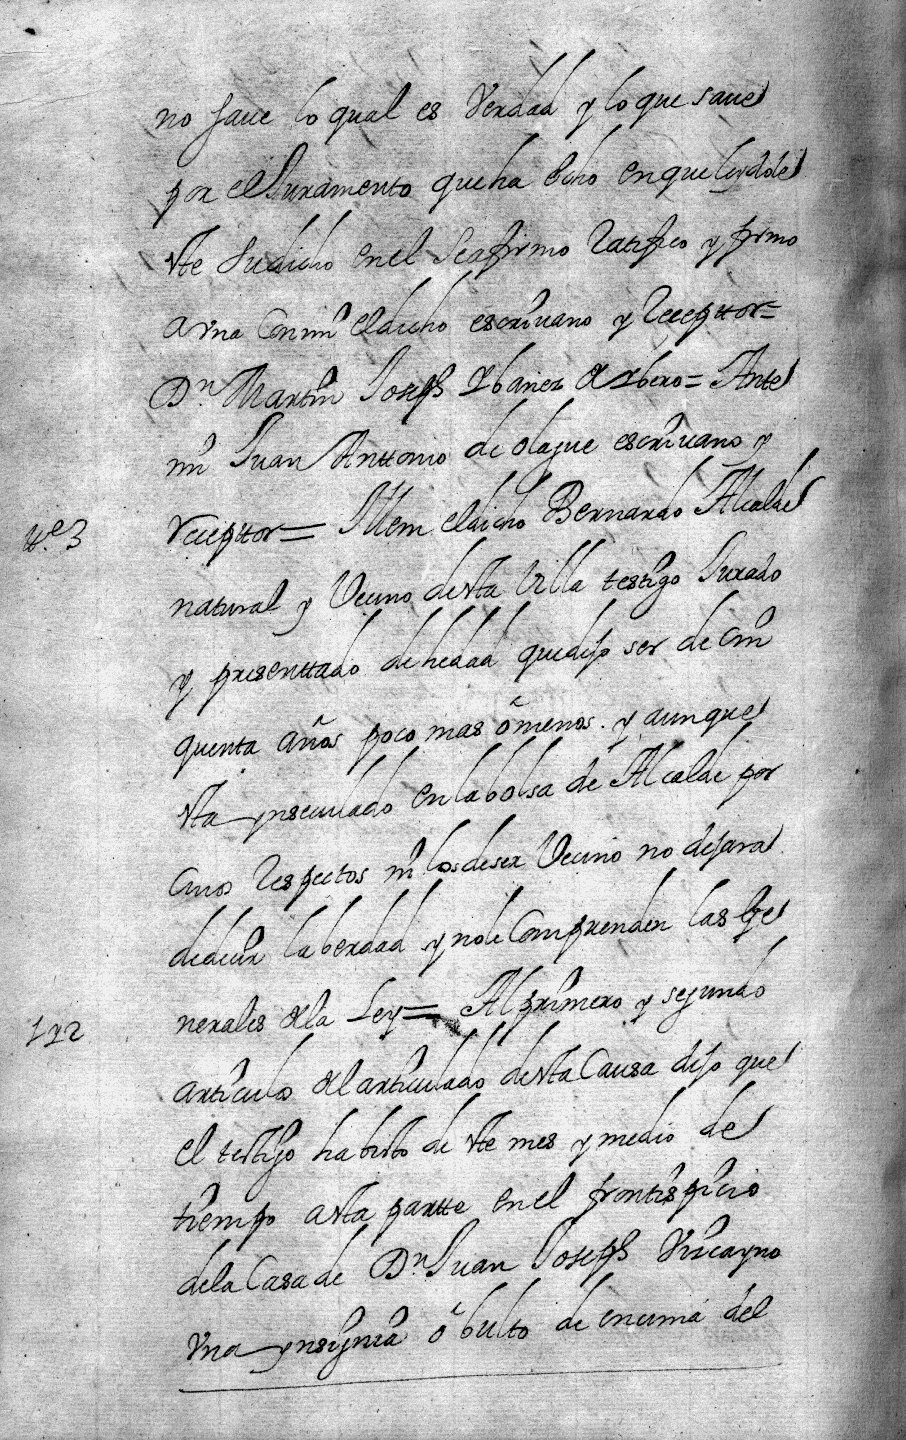 no save lo qual es Verdad y lo que save
por el Juramento que ha echo en que leydole
este su dicho en el se afirmo Ratifico y firmo
a una con mi el dicho escrivano y Receptor=
Dn. Martin Joseph Ybañez de Ybero= Ante
mi Juan Anttonio de olague escrivano y
t.e 3 receptor= Ittem el dicho Bernardo Alcalde
natural y Vecino desta Villa testigo Jurado
y presenttado de hedad que dijo ser de cin
quenta años poco mas ô menos. y aunque
esta ynseculado en la bolsa de Alcalde por
cuios Respectos ni los de ser Vecino no dejara
de decir la berdad y no le Comprenden las ge
nerales de la Ley= Al primero y segundo
1 y 2 articulos del articulado desta Causa dijo que
el testigo ha bisto de este mes y medio de
tiempo a esta partte en el frontispicio
de la Casa de Dn. Juan Joseph Vizcayno
Una ynsignia ô bulto de encima del